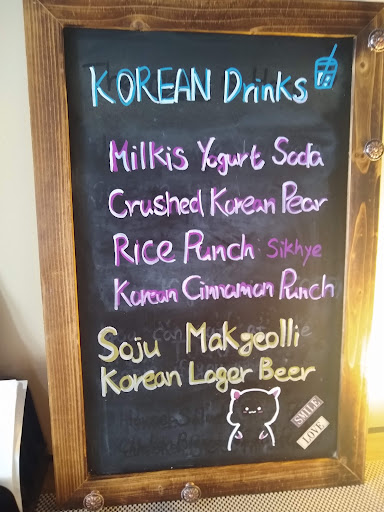 KOREAN Drinks
Milkis Yogurt Soda
Crushed Korean Pear
Rice Punch Sikhye
Korean Cinnamon Punch
Soju Makgeolli
Korean Lager Beer
SMILE
LOVE